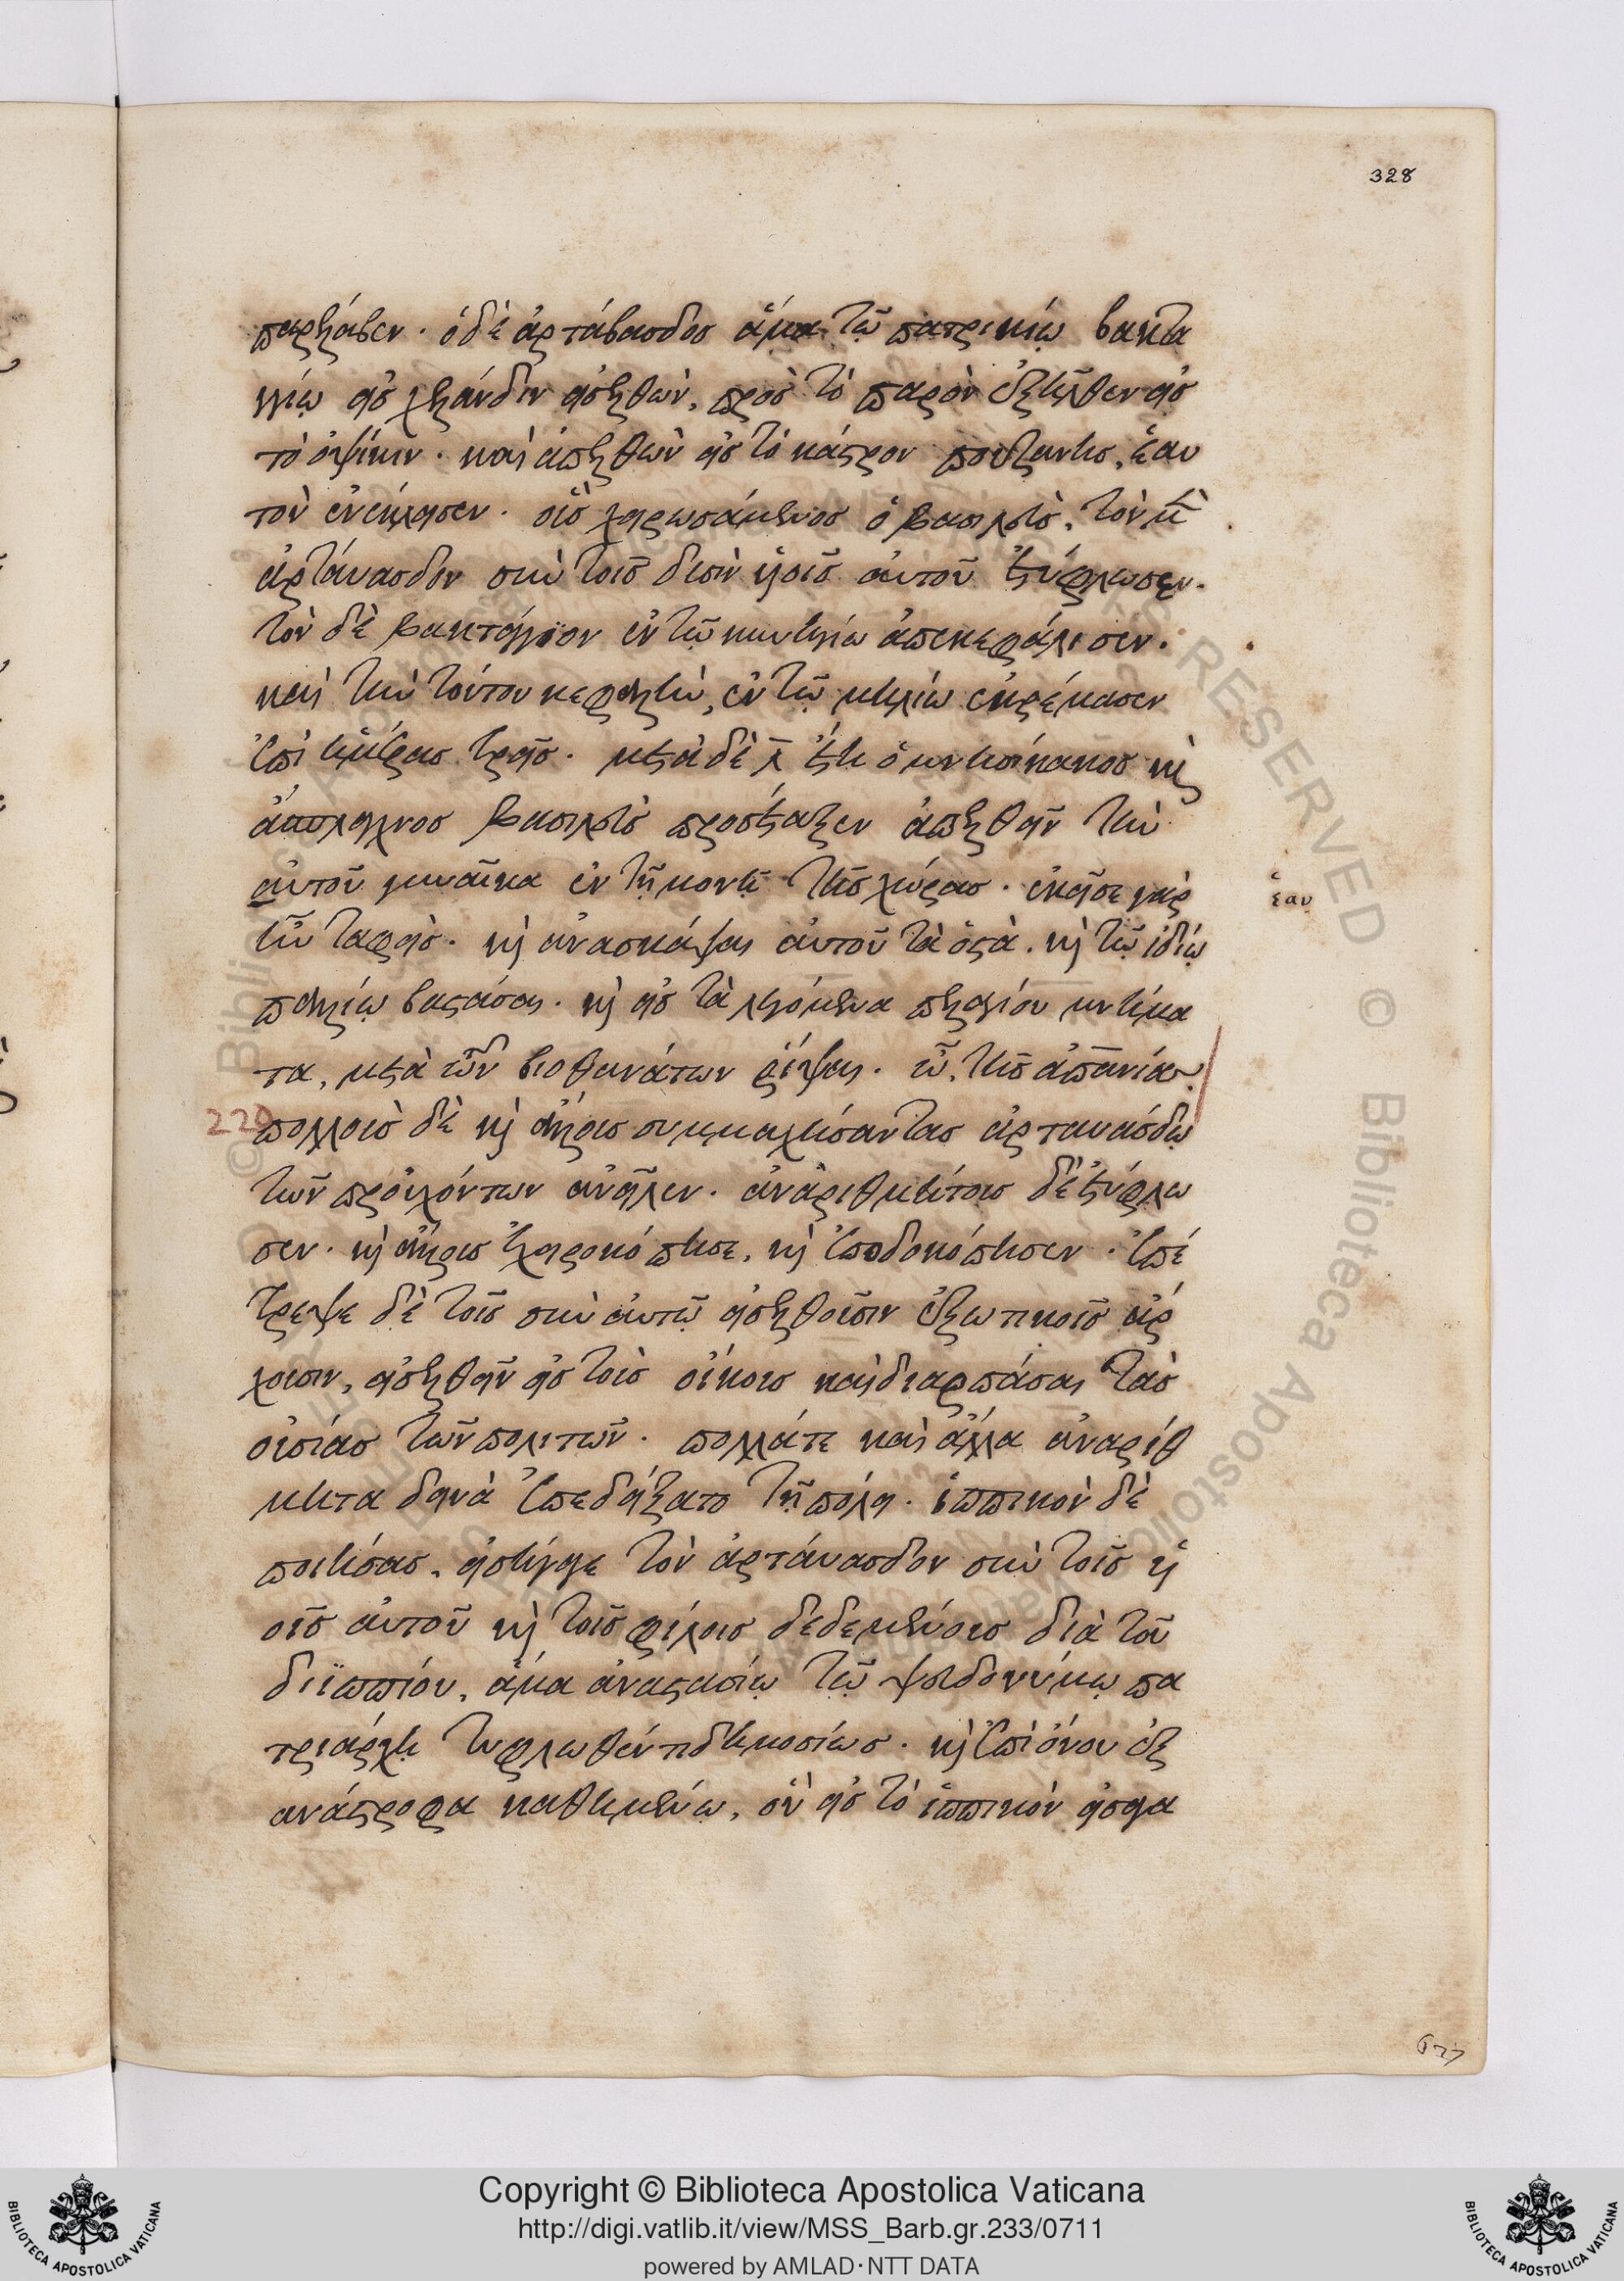 328
παρέλαβεν. ὁ δὲ ἀρτάβασδος ἅμα τῷ πατρικίῳ βακτα
γίῳ εἰς χελάνδιν εἰσελθὼν, πρὸς τὸ παρὸν ἐξῆλθεν εἰς
τὸ ὀψίκιν. καὶ ἀπελθὼν εἰς τὸ κάστρον πουζάνης, ἑαυ
τὸν ἐνέκλεισεν. οὓς χειρωσάμενος ὁ βασιλεὺς, τὸν μὲν
ἀρτάυασδον σὺν τοῖς δυσὶν υἱοῖς αὐτοῦ ἐτύφλωσεν.
τὸν δὲ βακτάγιον ἐν τῷ κυνηγίῳ ἀπεκεφάλισεν.
καὶ τὴν τούτου κεφαλὴν, ἐν τῷ μιλίῳ ἐκρέμασεν
ἐπὶ ἡμέρας τρεῖς. μετὰ δὲ λ̄ ἔτη ὁ μνησίκακος καὶ
ἄσπλαγχνος βασιλεὺς προσέταξεν ἀπελθεῖν τὴν
αὐτοῦ γυναῖκα ἐν τῇ μονῇ τῆς χώρας. ἐκεῖσε γὰρ
ἦν ταφεὶς. καὶ ἀνασκάψαι αὐτοῦ τὰ ὀστᾶ. καὶ τῷ ἰδίῳ
παλλίῳ βαστάσαι. καὶ εἰς τὰ λεγόμενα πελαγίου μνήμα
τα, μετὰ τῶν βιοθανάτων ῥίψαι. ὢ, τῆς ἀπανίας.
ἑαυ
220
πολλοὺς δὲ καὶ ἄλλους συμμαχήσαντας ἀρταυάσδῳ
τῶν προυχόντων ἀνεῖλεν. ἀναριθμήτους δὲ ἐτύφλω
σεν. καὶ ἄλλους ἐχειροκόπησε, καὶ ἐποδοκόπησεν. ἐπέ
τρεψε δὲ τοῖς σὺν αὐτῷ εἰσελθοῦσιν ἐξωτικοῖς ἄρ
χουσιν, εἰσελθεῖν εἰς τοὺς οἴκους καὶ διαρπάσαι τὰς
οὐσίας τῶν πολιτῶν. πολλά τε καὶ ἄλλα ἀναρίθ
μητα δεινὰ ἐπεδείξατο τῇ πόλει. ἱππικὸν δὲ
ποιήσας, εἰσήγαγε τὸν ἀρτάυασδον σὺν τοῖς υἱ
οῖς αὐτοῦ καὶ τοῖς φίλοις δεδεμένους διὰ τοῦ
διϊππίου, ἅμα ἀναστασίῳ τῷ ψευδονύμῳ πα
τριάρχῃ τυφλωθέντι δημοσίως. καὶ ἐπὶ ὄνου ἐξ
ανάστροφα καθημένῳ, ὃν εἰς τὸ ἱππικὸν εἰσαγα
Copyright © Biblioteca Apostolica Vaticana
http://digi.vatlib.it/view/MSS_Barb.gr.233/0711
powered by AMLAD·NTT DATA
BIBLIOTECA APOSTOLICA VATICANA
BIBLIOTECA APOSTOLICA VATICANA